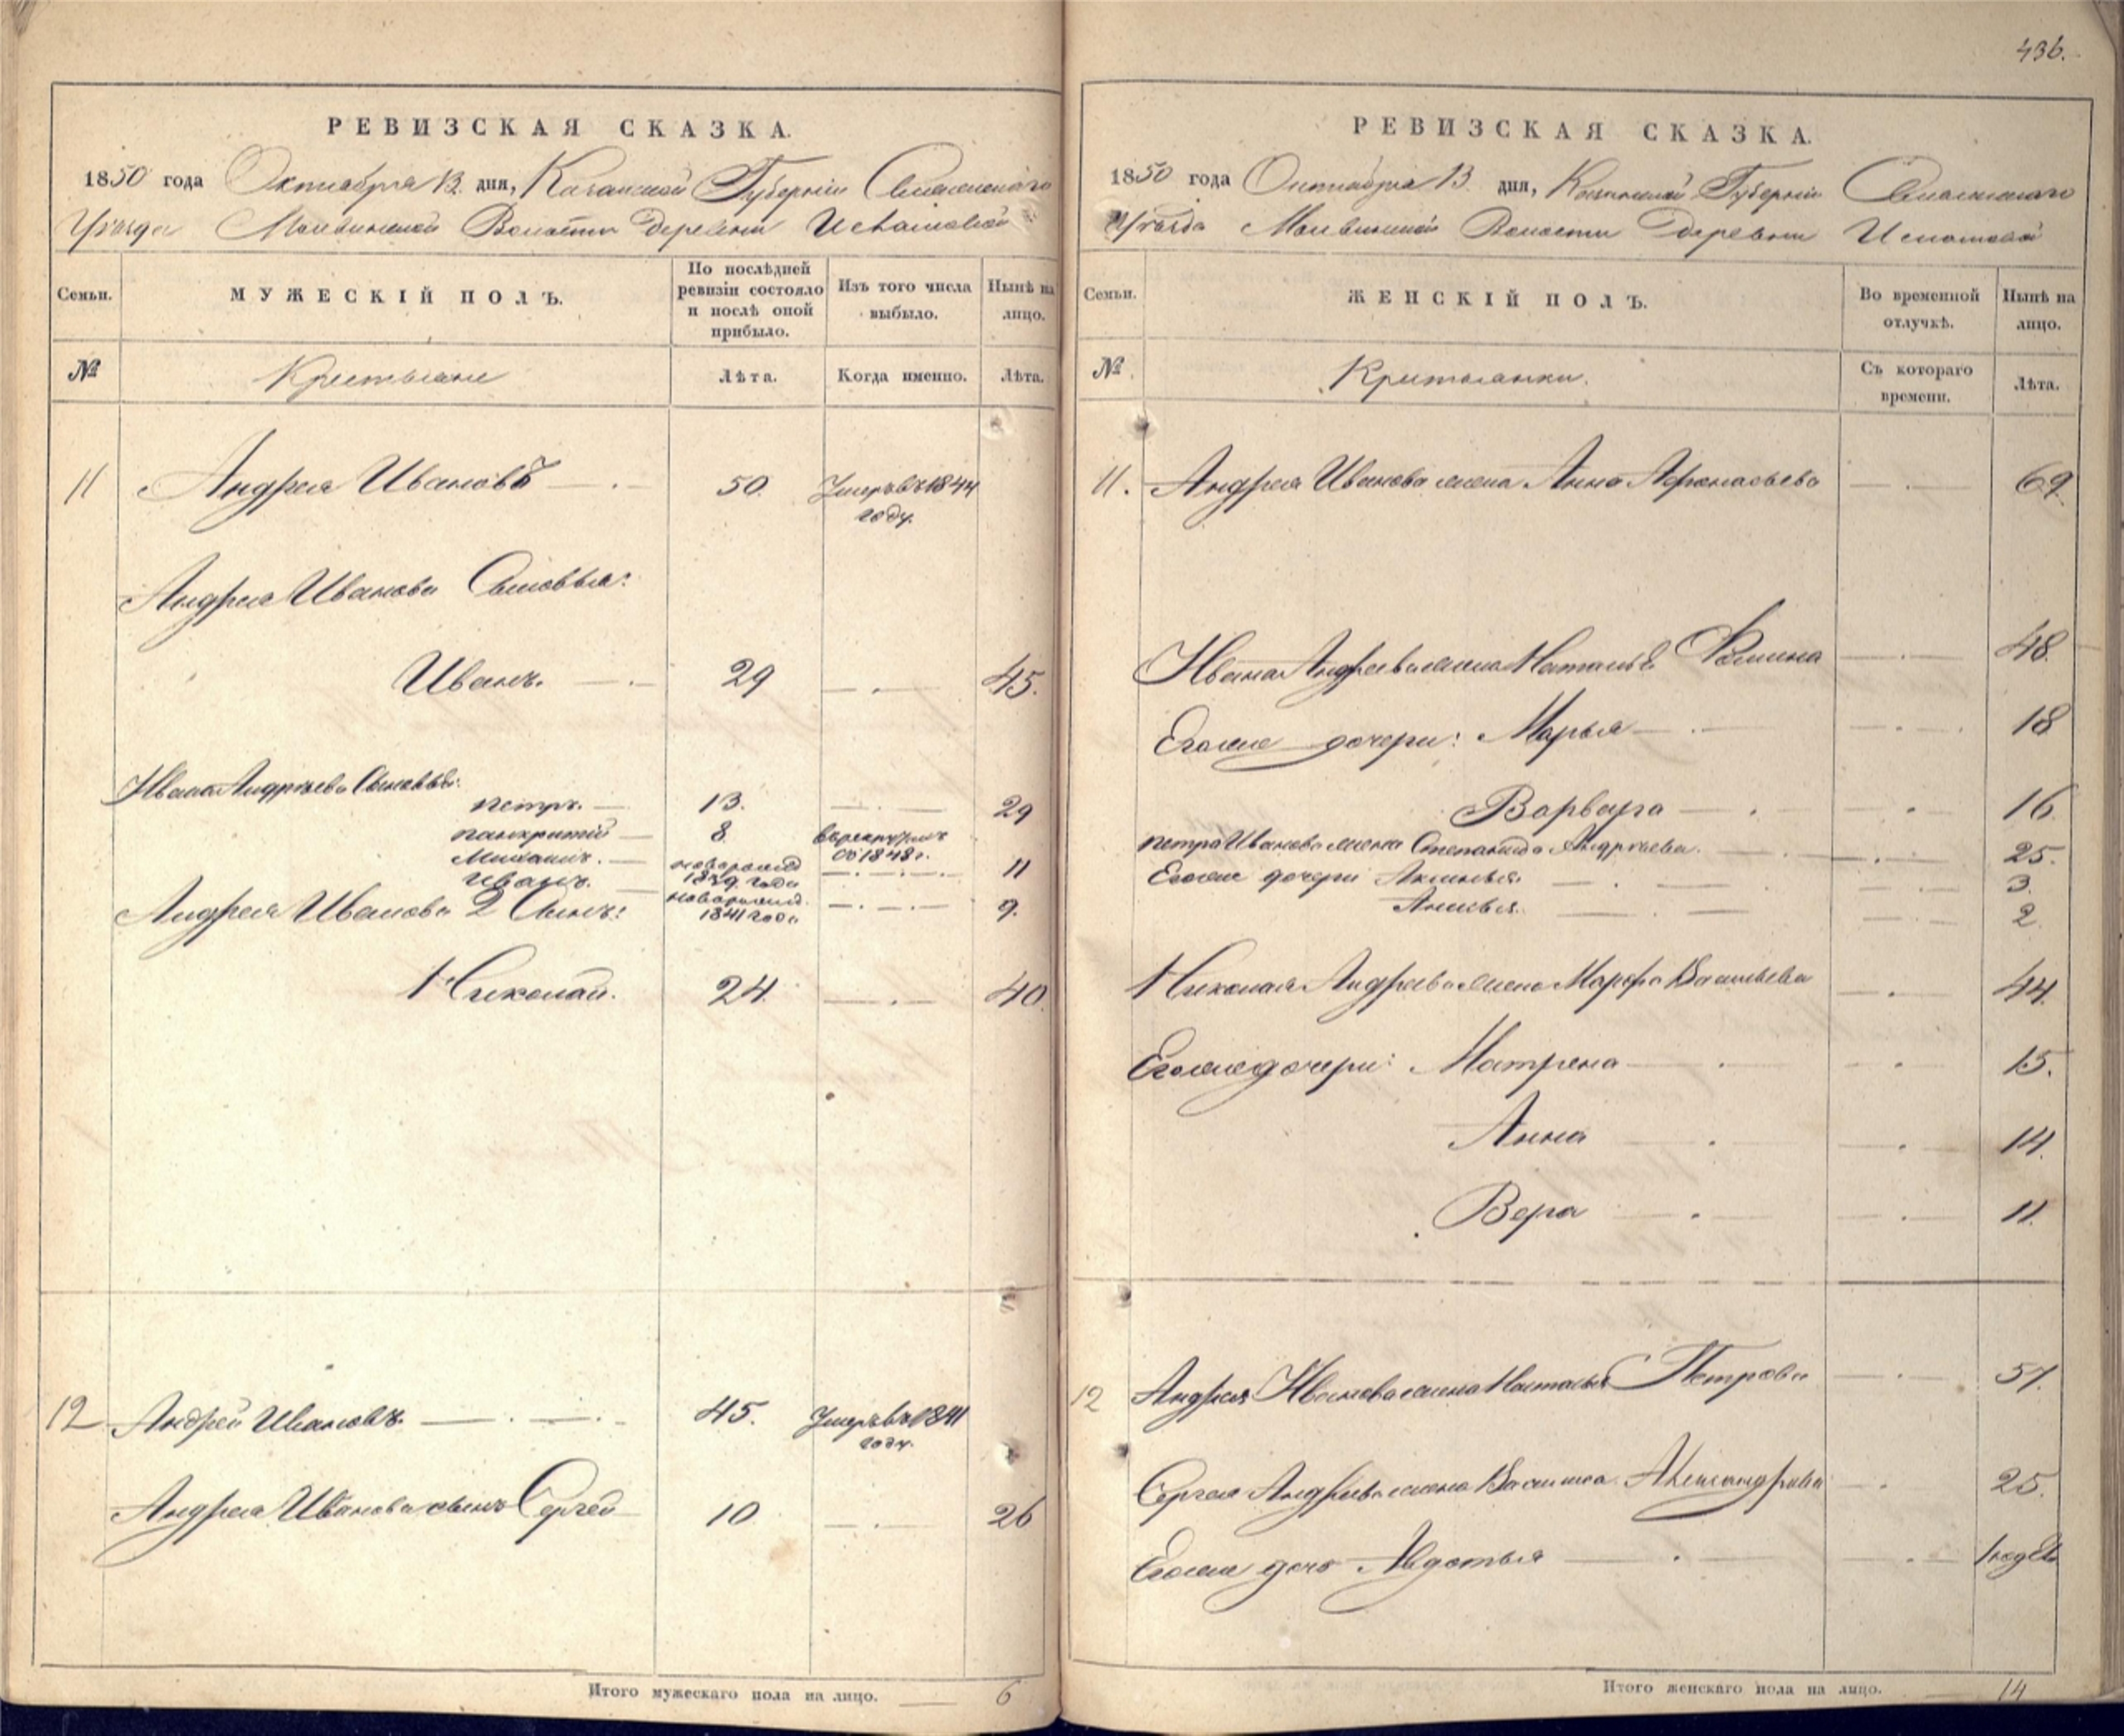 РЕВИЗСКАЯ СКАЗКА.
1850 года Октября 13 дня, Казанской Губернiи Спасскаго
Уѣзда Волости Деревни
Семьи.
МУЖЕСКІЙ ПОЛЪ.
По послѣдней ревизіи состояло и послѣ оной прибыло.
Изъ того числа выбыло.
Нынѣ на лицо.
№
Крестьяне
Лѣта.
Когда именно.
Лѣта.
11 Андрей Ивановъ 50. Умеръ въ 1844 году.
Андрея Иванова Сыновья:
Иванъ. 29 45.
Ивана Андреева Сыновья:
Петръ. 13. 29
Панкратiй 8. въ рекруты въ 1848 г.
Михаилъ. новорожд 1839 года 11
Иванъ. новорожд. 1841 года 9.
Андрея Иванова 2 Сынъ:
Николай. 24. 40
12 Андрей Ивановъ 45. Умеръ въ 1841 году.
Андрея Иванова сынъ Сергей 10 26
Итого мужескаго пола на лицо. 6
436.
РЕВИЗСКАЯ СКАЗКА.
1850 года Октября 13 дня, Казанской Губернiи Спасскаго
Уѣзда Волости Деревни
Семьи.
ЖЕНСКІЙ ПОЛЪ.
Во временной отлучкѣ.
Нынѣ на лицо.
№.
Крестьянки.
Съ котораго времени.
Лѣта.
11. Андрея Иванова жена Анна Афанасьева 69.
Ивана Андреева жена Наталья Фомина 48.
Его же дочери: Марья 18
Варвара 16
Петра Иванова жена Степанида Андреева. 25.
Его же дочери Аксинья. 3.
Анисья. 2
Николая Андреева жена Марфа Васильева 44.
Его же дочери: Матрена 15.
Анна 14.
Вера 11.
12 Андрея Иванова жена Наталья Петрова 51.
Сергея Андреева жена Василиса Александрова 25.
Его же дочь Авдотья 1 года
Итого женскаго пола на лицо. 14